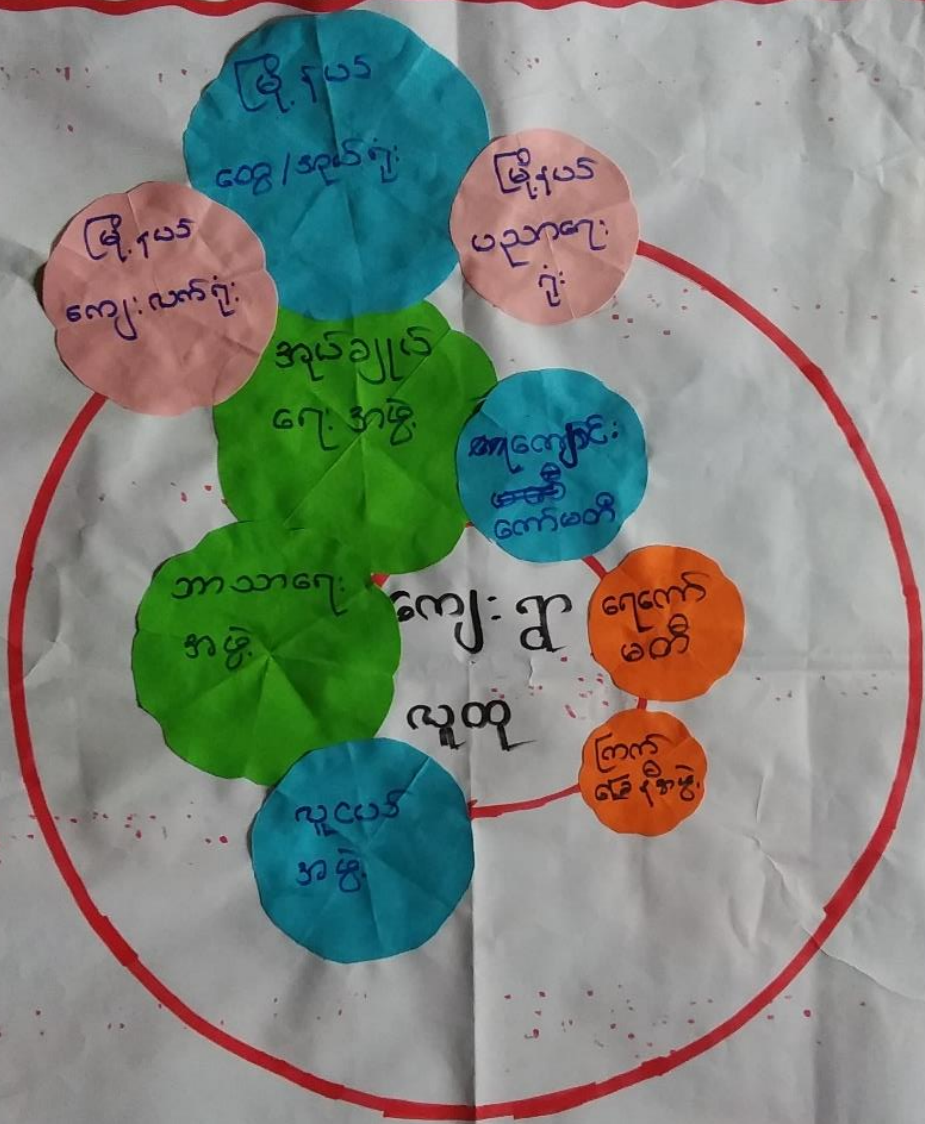 မြို့နယ်
ထွေ/အုပ်ရုံး
မြို့နယ်
ပညာရေး
ရုံး
မြို့နယ်
ကျေးလက်ရုံး
အုပ်ချုပ်
ရေးအဖွဲ့
စာကျောင်း
ကော်မတီ
ဘာသာရေး
အဖွဲ့
ကျေးရွာ
လူထု
ရေကော်
မတီ
ကြက်
ခြေနီအဖွဲ့
လူငယ်
အဖွဲ့